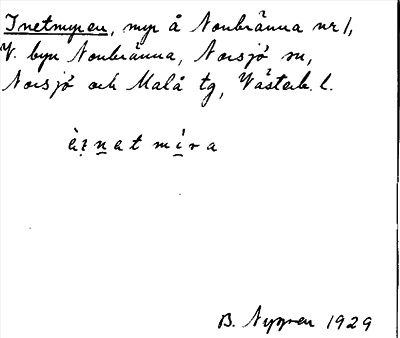 Inetmyren, myr å Norrbränna nr 1,
V. byn Norrbränna, Norsjö sn,
Norsjö och Malå tg, Västerb. l.
B. Nygren 1929